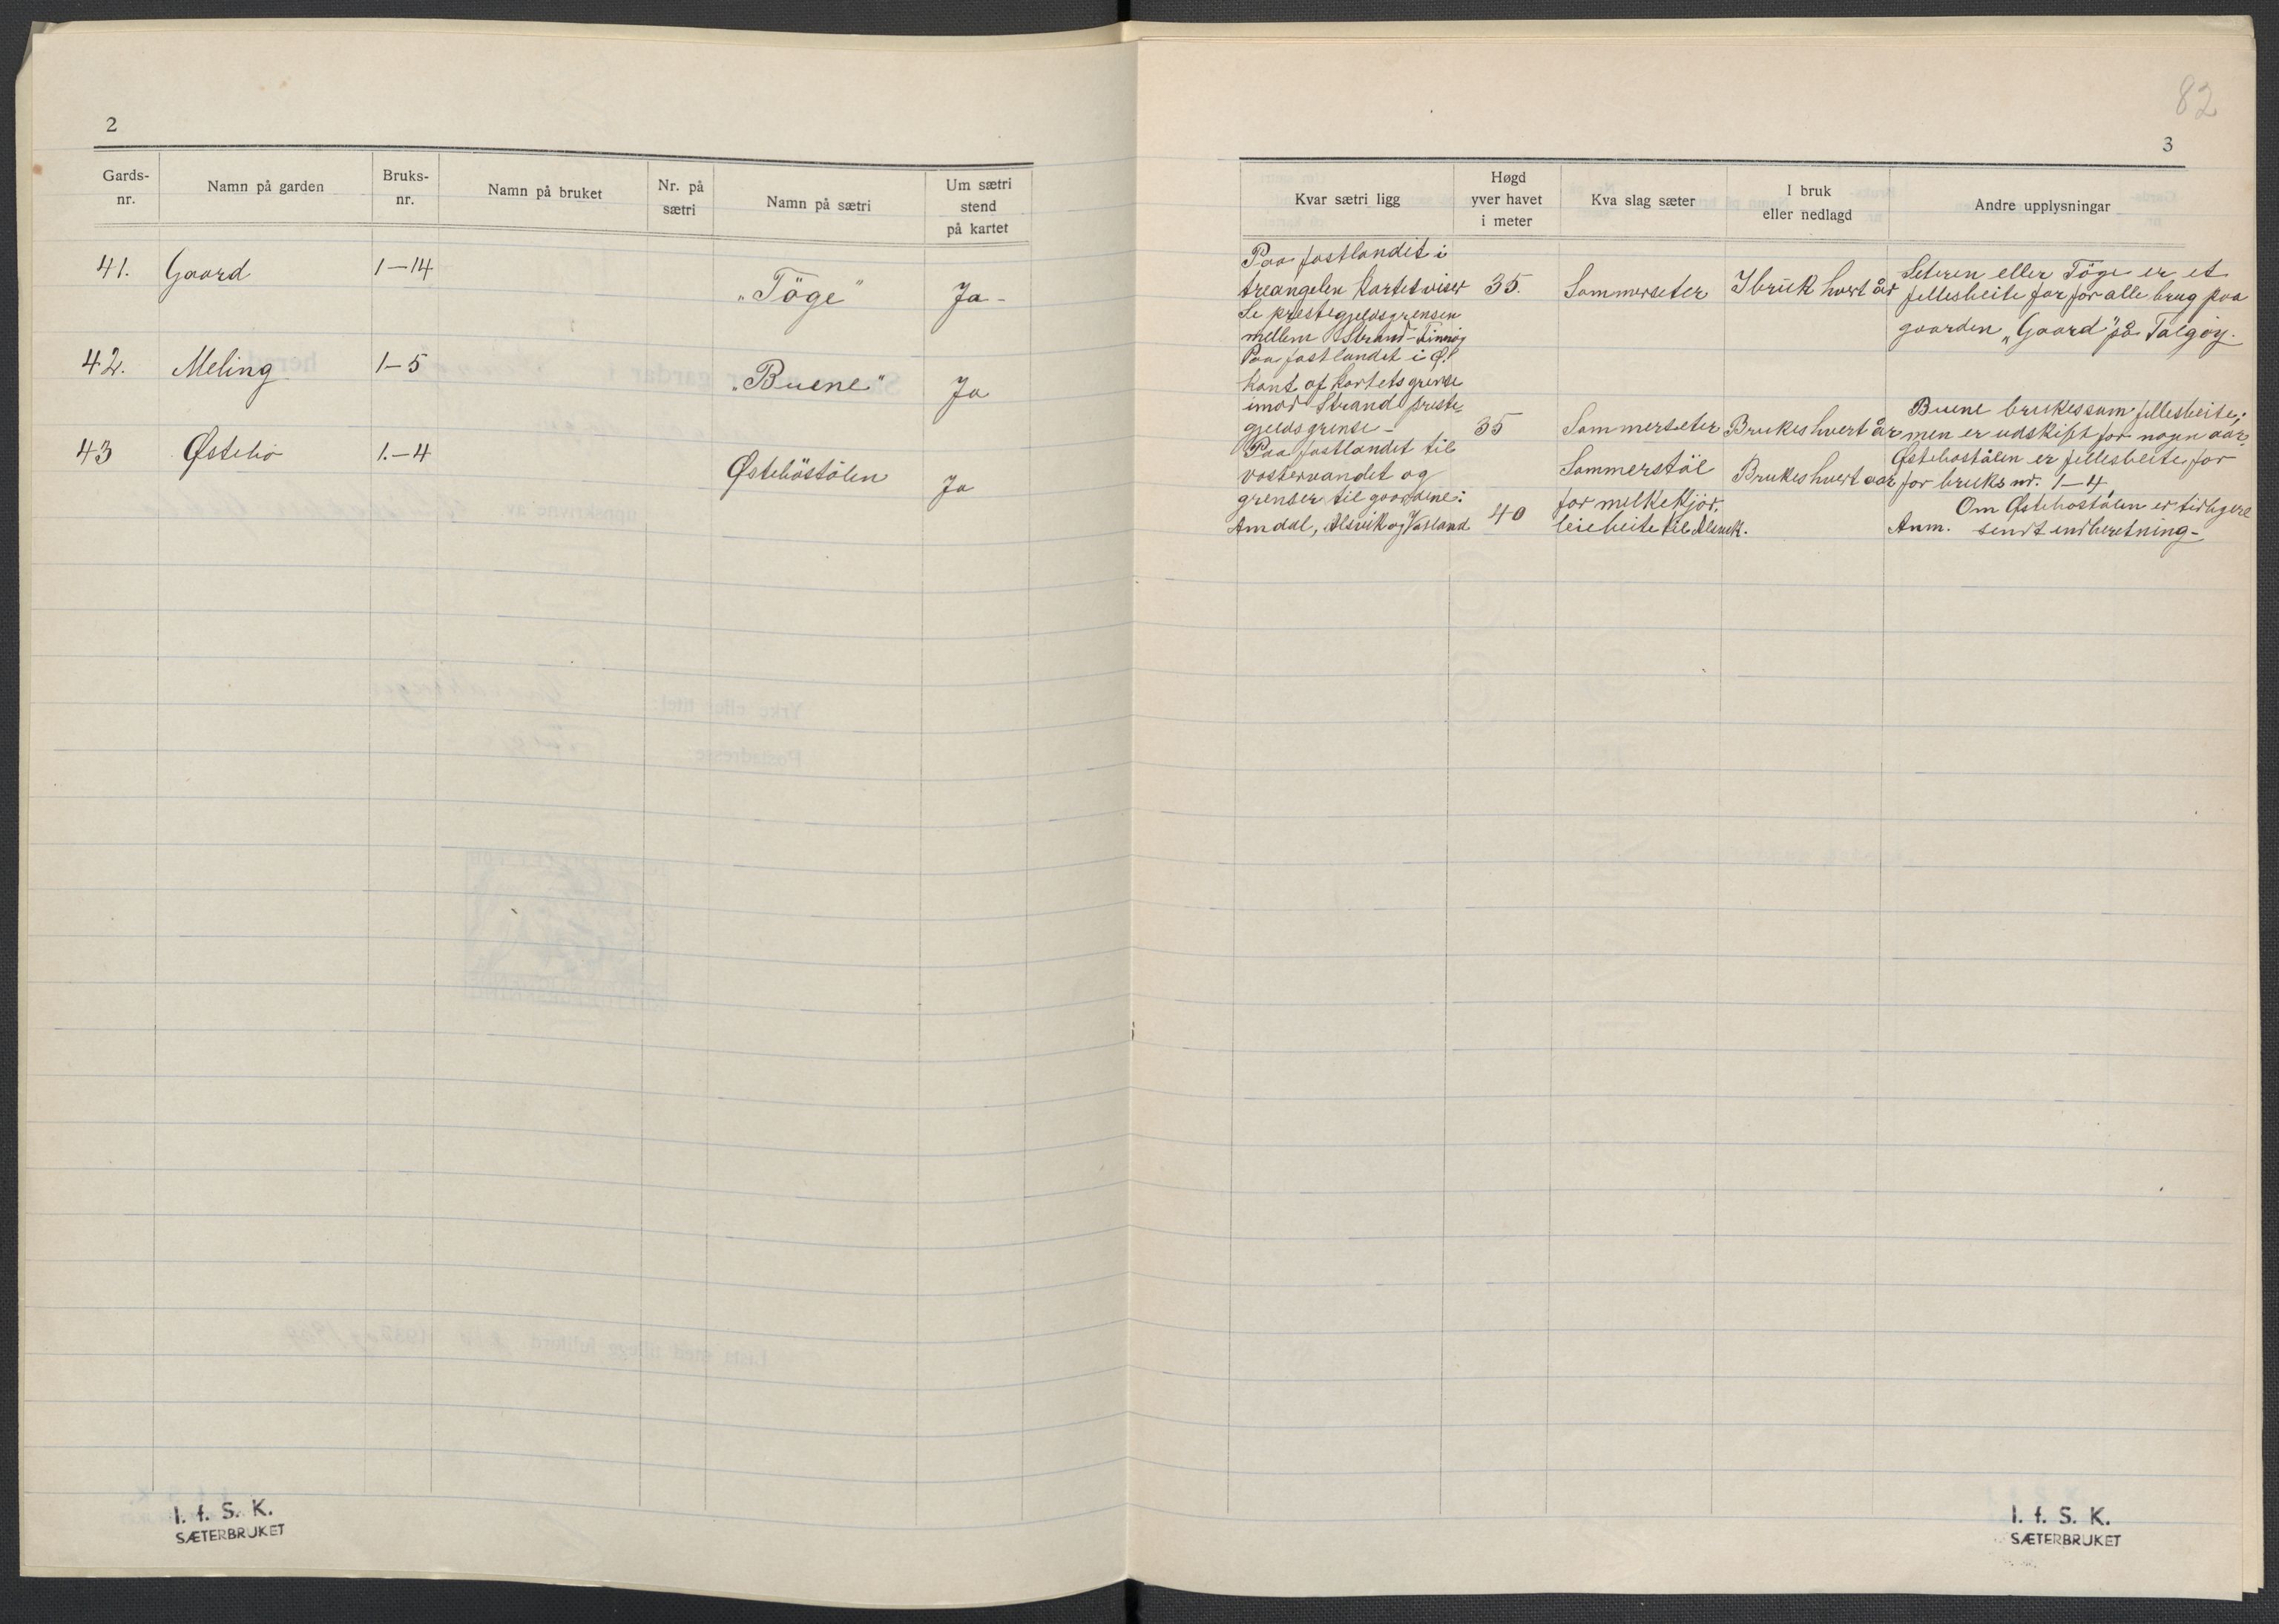 2
Gards-nr. Namn på garden Bruks-nr. Namn på bruket Nr. på sætri Namn på sætri Um sætri stend på kartet
41. Gaard 1-14 "Töge" Ja-
42. Meling 1-5 "Buene" Ja
43 Østebø 1.-4 Østeböstölen Ja
I. f. S. K.
SÆTERBRUKET
82
3
Kvar sætri ligg Høgd yver havet i meter Kva slag sæter I bruk eller nedlagd Andre upplysningar
Paa fastlandet i
treangelen kartet viser 35. Sommerseter I bruk hvert år
Se prestegjeldsgrensen
mellem Strand-Finnøy
Seteren eller Töge er et
fellesbeite for for alle brug paa
gaarden "Gaard" på Talgøy.
Paa fastlandet i Øst
kant af kartets grense
imod Strand preste-
gjelds grense- 35 Sommerseter Brukes hvert år
Buene brukes som fellesbeite;
men er udskift for nogen aar.
Paa fastlandet til
vostervandet og
grenser til gaardene:
Amdal, Alsvik og Vasland 40
Sommerstöl
for melkekjör.
leiebeite til Alsvik.
Brukes hvert aar
Østebøstölen er fellesbeite for
for bruks nr. 1-4
Om Østebøstölen er tidligere
Anm. sendt indberetning-
I. f. S. K.
SÆTERBRUKET